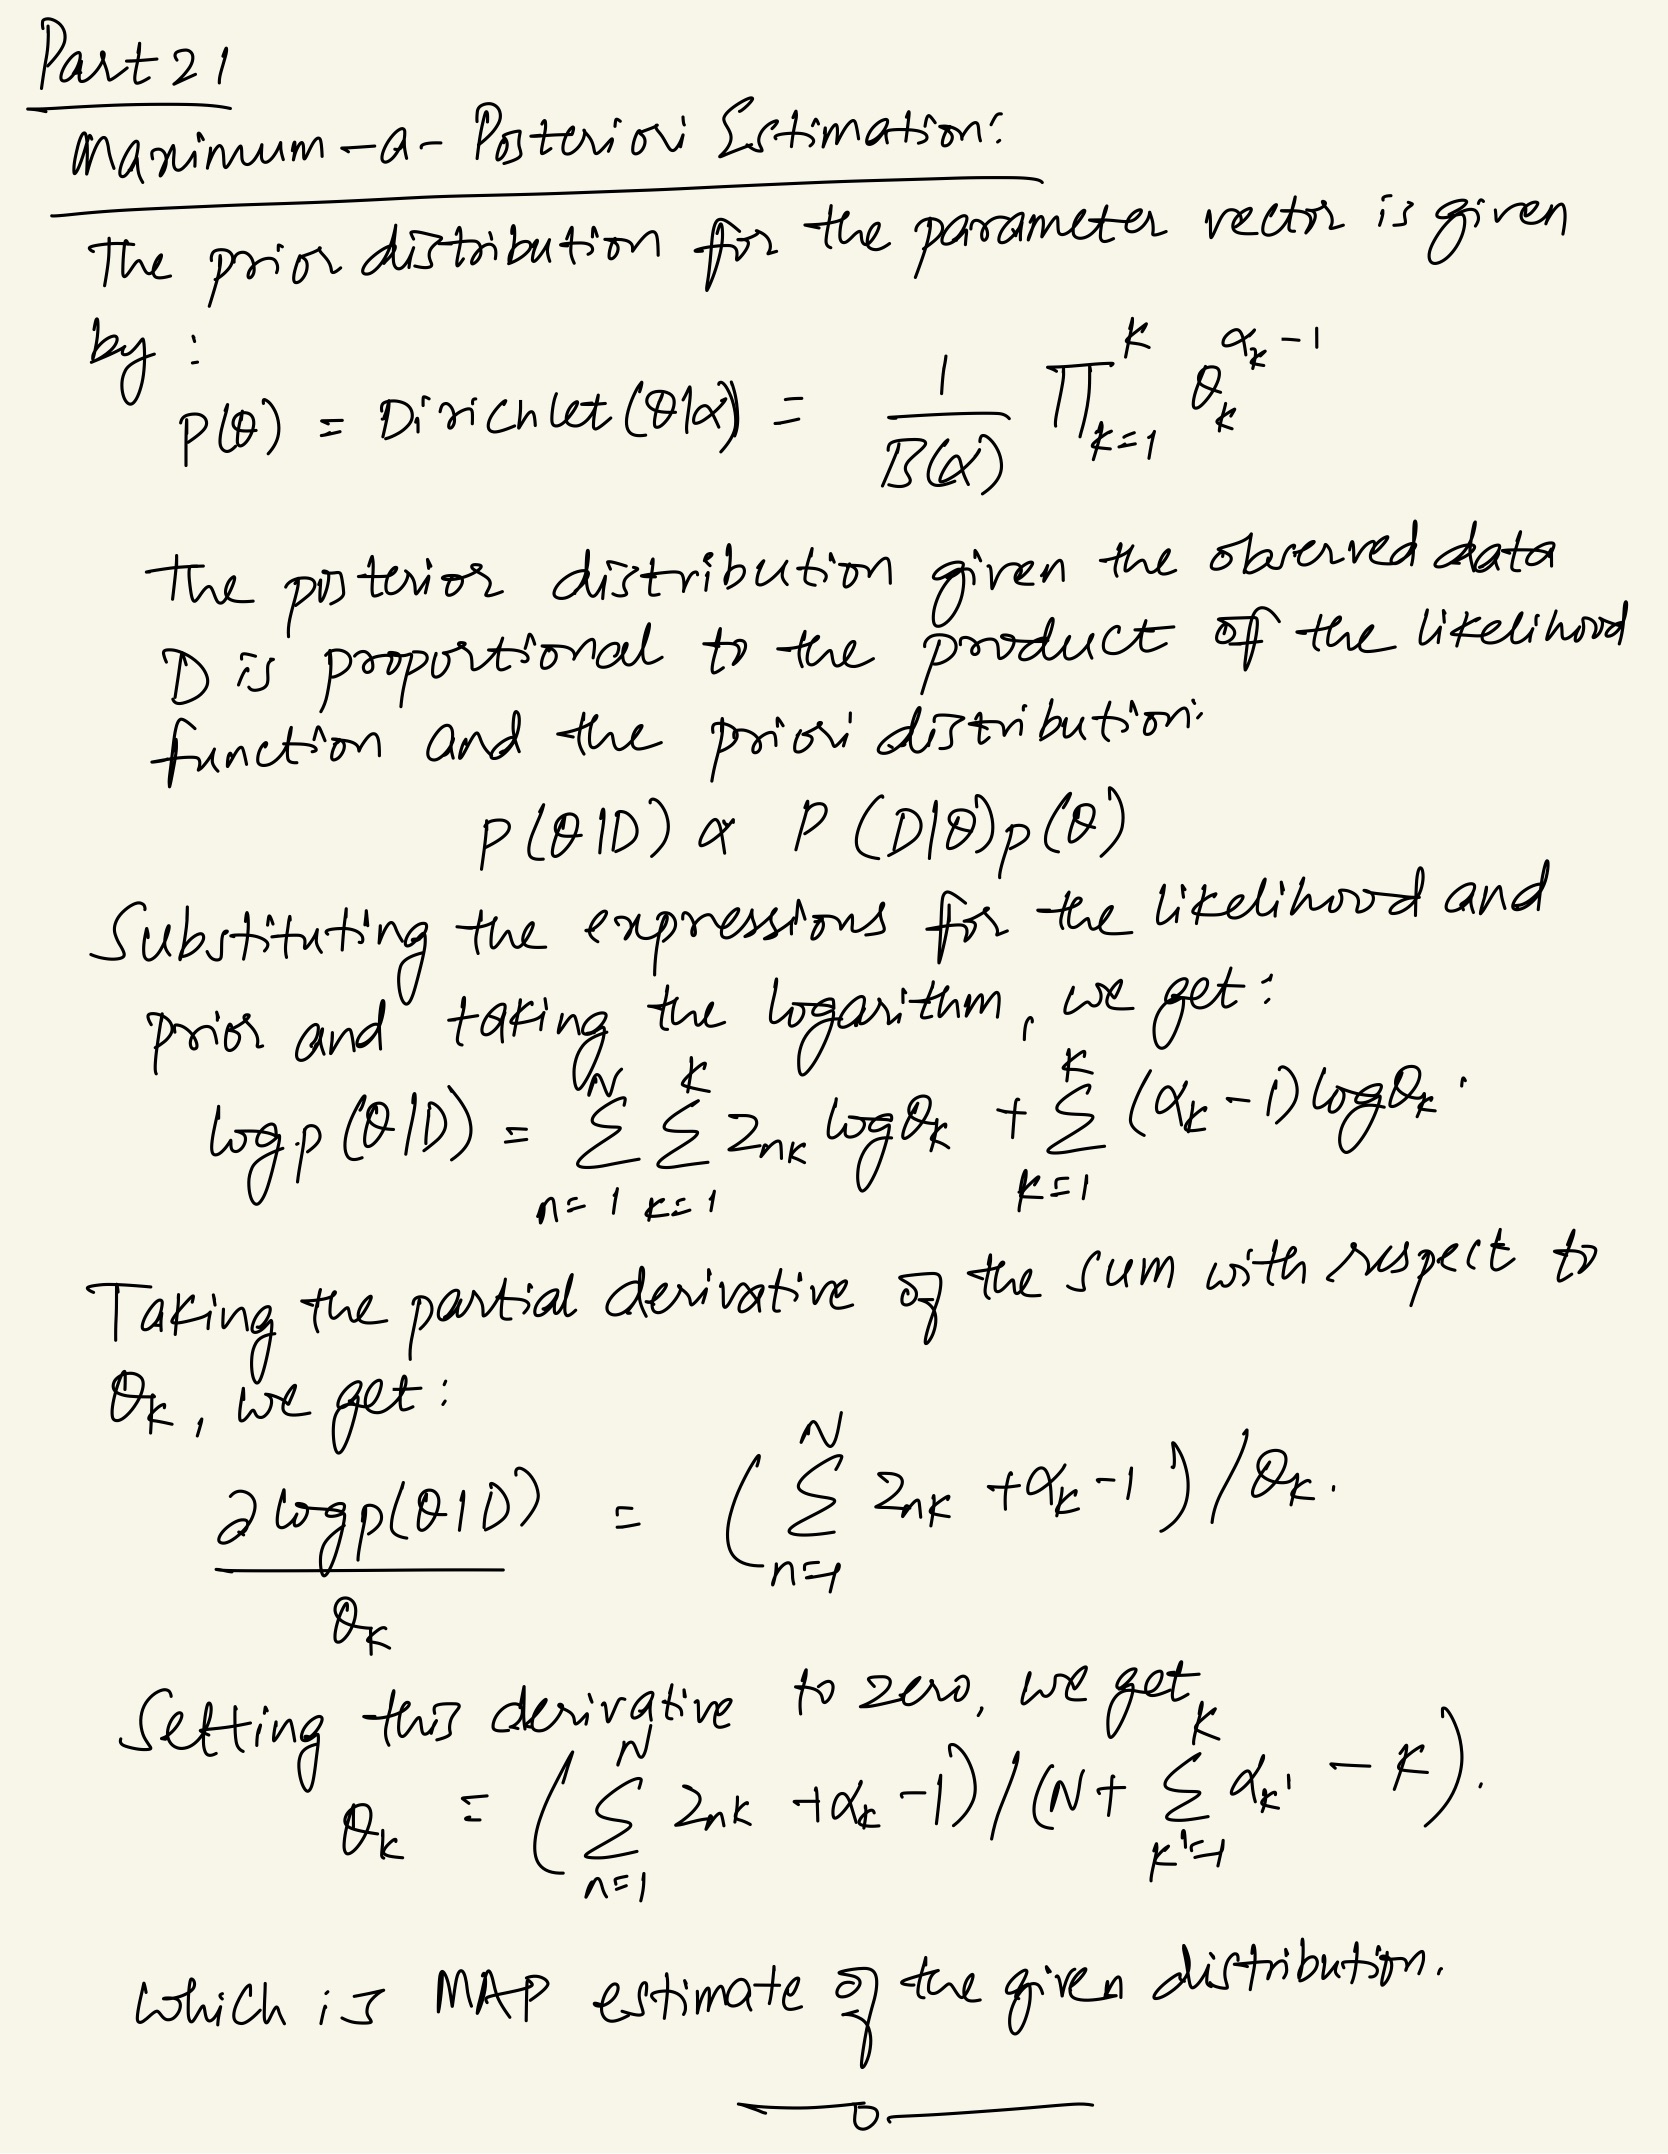 Part 21
Maximum-a-Posteriori Estimation:
The prior distribution for the parameter vector is given
by:
P(θ) = Dirichlet(θ|α) = 1/B(α) ∏_{k=1}^{K} θ_k^{α_k - 1}
The posterior distribution given the observed data
D is proportional to the product of the likelihood
function and the priori distribution:
P(θ|D) ∝ P(D|θ)p(θ)
Substituting the expressions for the likelihood and
prior and taking the logarithm, we get:
log p(θ|D) = Σ_{n=1}^{N} Σ_{k=1}^{K} z_{nk} log θ_k + Σ_{k=1}^{K} (α_k - 1) log θ_k.
Taking the partial derivative of the sum with respect to
θ_k, we get:
∂ log p(θ|D) / θ_k = (Σ_{n=1}^{N} z_{nk} + α_k - 1) / θ_k.
Setting this derivative to zero, we get
θ_k = (Σ_{n=1}^{N} z_{nk} + α_k - 1) / (N + Σ_{k'=1}^{K} α_{k'} - K).
which is MAP estimate of the given distribution.